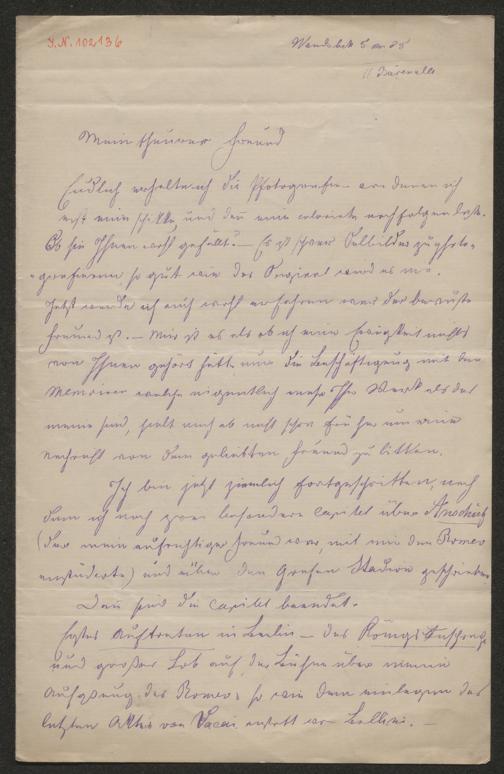 I.N. 102136
Wandsbek 5 85
11 Bärenallee
Mein theurer Freund
Endlich erhalte ich die Photografie — von denen ich
erst eine schikke, und der eine colorierte nachfolgen lasse.
Ob sie Ihnen wohl gefällt? — Es ist schwer Oelbilder zu photo-
grafieren, so gut wie das Original wird es nie.
Jetzt werde ich auch wohl erfahren wer der bewußte
Freund ist. — Mir ist es als ob ich eine Ewigkeit nichts
von Ihnen gehört hätte, nur die Beschäftigung mit den
Memoiren welche eigentlich mehr Ihr Werk als das
meine sind, hielt mich ab nicht schon früher um eine
Nachricht von dem geliebten Freund zu bitten.
Ich bin jetzt ziemlich fortgeschritten, nach
dem ich noch zwei besondere Capitel über Anschütz
(der mein aufrichtiger Freund war, mit mir den Romeo
einstudierte) und über den Grafen Stadion geschrieben
Dan sind die Capitel beendet.
Erstes Auftreten in Berlin — des Königs Ausspruch
und großer Lob auf der Bühne über meine
Auffassung des Romeo, so wie dem einlegen des
letzten Aktes von Vacai anstatt von Bellini. —